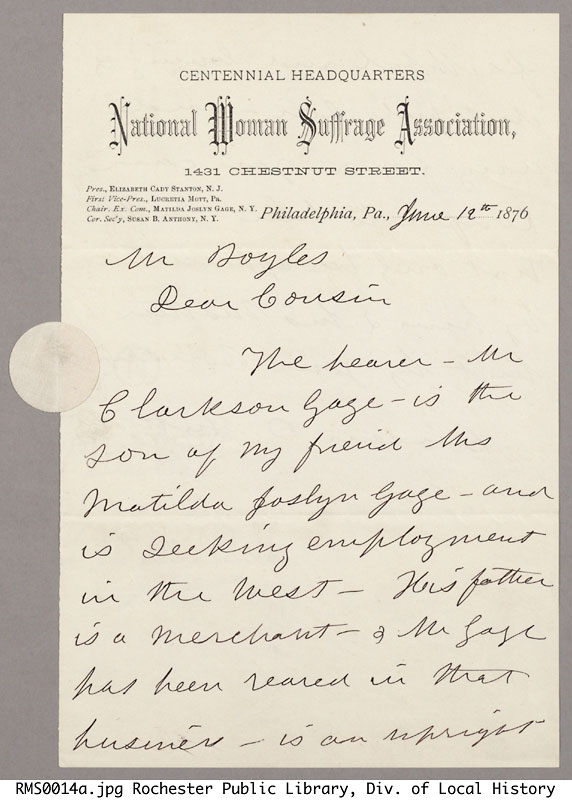 CENTENNIAL HEADQUARTERS
National Woman Suffrage Association,
1431 CHESTNUT STREET.
Pres., ELIZABETH CADY STANTON, N. J.
First Vice-Pres., LUCRETIA MOTT, Pa.
Chair. Ex. Com., MATILDA JOSLYN GAGE, N. Y.
Cor. Sec'y, SUSAN B. ANTHONY, N. Y.
Philadelphia, Pa., June 12th 1876
Mr Boyles
Dear Cousin
The bearer – Mr
Clarkson Gage – is the
son of my friend Mrs
Matilda Joslyn Gage – and
is seeking employment
in the West – His father
is a merchant – & Mr Gage
has been reared in that
business – is an upright
RMS0014a.jpg Rochester Public Library, Div. of Local History